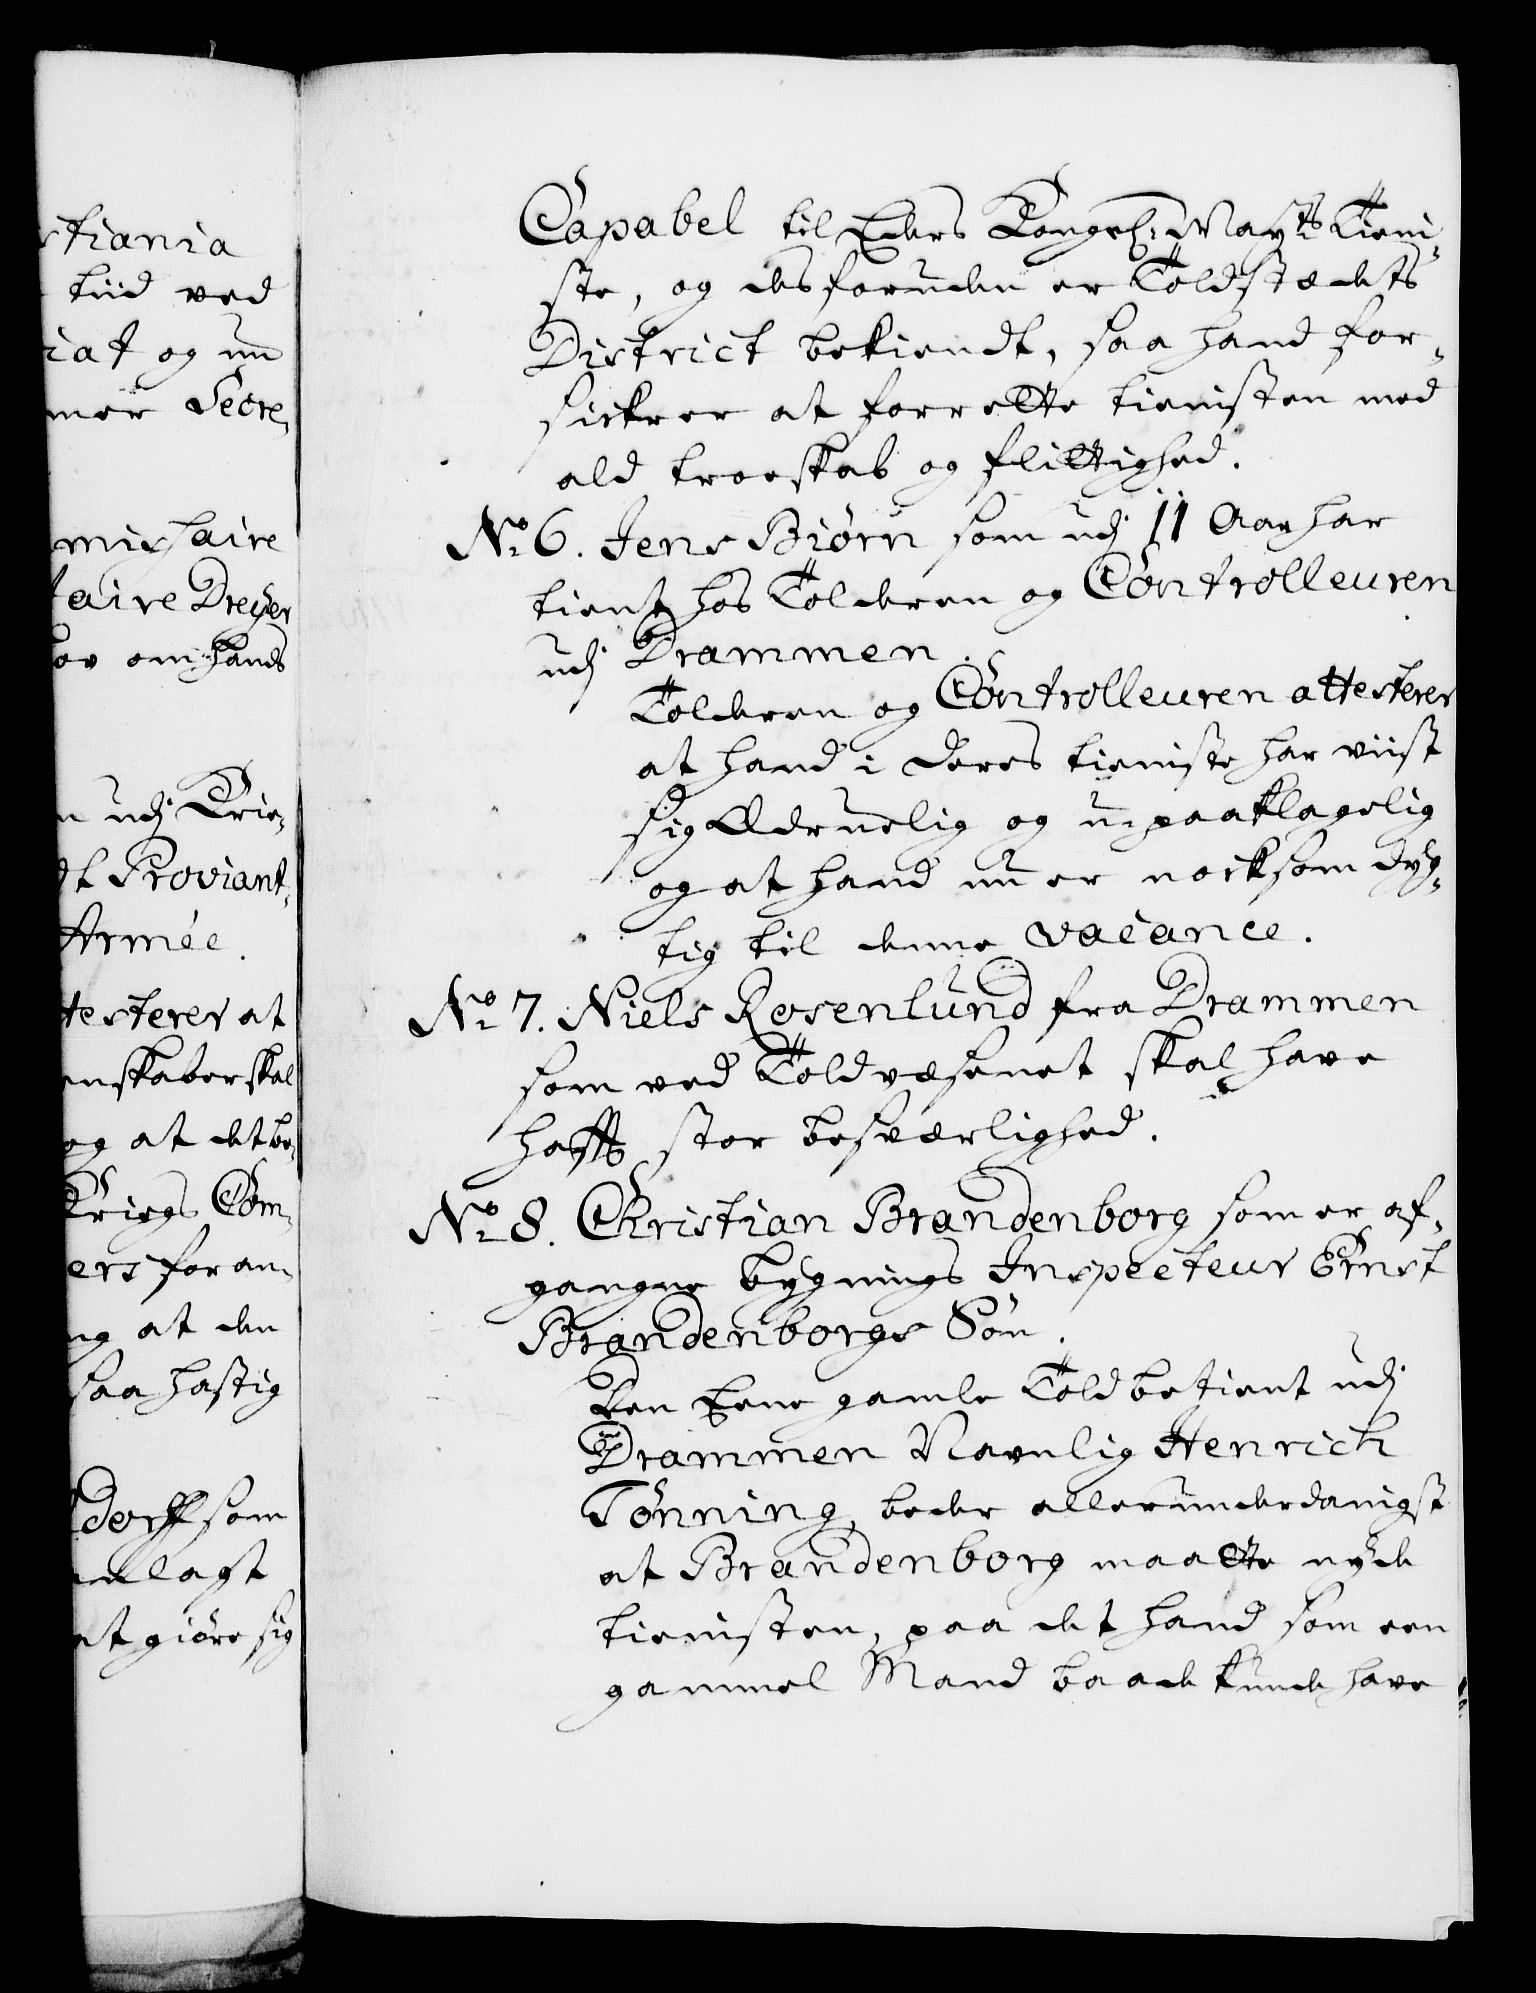 stiania
tiid ved
iat og nu
mer Secre-
mishaire
taire Dreyer
ov om hands
n udj Krie-
dt Proviant-
Armée.
testerer at
enskaber skal
og at det be-
Kriegs Com-
ers foran-
ng at den
saa hastig
dorff som
anlagt
at giöre sig
Capabel til Eders Kongel: Mayts Tieni-
ste, og desforuden er Toldstædets
District bekiendt, saa hand for-
sickrer at forrette tienisten med
ald troeskab og flittighed.
No 6. Jens Biörn som udj 11 Aar har
tient hos Tolderen og Controlleuren
udj Drammen.
Tolderen og Controlleuren attesterer
at hand i deres tieniste har viist
sig Ædruelig og u-paaklagelig
og at hand nu er nocksom dyg-
tig til denne vacance.
No 7. Niels Rosenlund fra Drammen
som ved Toldvæsenet skal have
hafft stor besværlighed.
No 8. Christian Brandenborg som er af-
gangne bygnings Inspecteur Ernst
Brandenborgs Sön.
Den Eene gamle Toldbetient udj
Drammen Navnlig Henrich
Tönning, beder allerunderdanigst
at Brandenborg maatte nyde
tienisten, paa det hand som een
gammel Mand baade kunde have